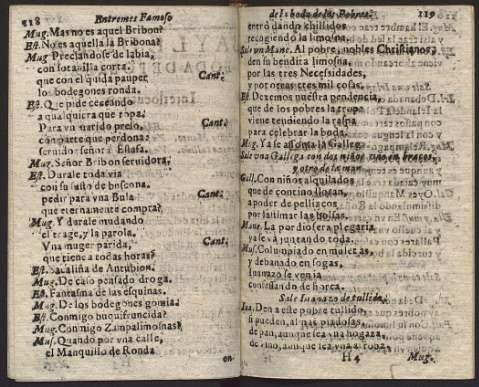 118 Entremes Famoso
Mug. Mas no es aquel Bribon?
Est. No es aquella la Bribona?
Mug. Preciandose de labia,
con locauilla corta. Cant.
que con el quida pauper,
los bodegones ronda.
Est. Que pide ceceando
a qualquiera que topa? Cant.
Para vn marido preso,
con parte que perdona?
seruido señora Estafa.
Mug. Señor Bribon seruidora.
Est. Durale toda via
con su susto de buscona, Cant.
pedir para vna Bula
que eternamente compra?
Mug. Y durale mudando
el trage, y la parola,
Vna muger parida, Cant.
que tiene a todas horas?
Est. de Antubion.
Mug. De caso pensado droga.
Est. Fantasma de las esquinas.
Mug. De los bodegones gomia?
Est. Conmigo
Mug. Conmigo Zampalimosnas?
Mus. Quando por vna calle,
el Manquillo de Ronda
en-
de la boda de los Pobres. 119
entró dando chillidos
recogiendo la limosna.
Sale vn Manc. Al pobre, nobles Christianos,
den su bendita limosna,
por las tres Necessidades,
y por otras tres mil cosas.
Est. Dexemos nuestra pendencia,
que de los pobres la tropa
viene tendiendo la raspa
para celebrar la boda.
Mug. Ya se assoma la Gallega.
Sale vna Gallega con dos niños vno en braços,
y otro de la man
Gall. Con niños alquilados
que de contino lloran,
a poder de pellizcos
por lastimar las bolsas.
Manc. La por diosera plegaria
ya se va juntando toda.
Mus. Columpiado en muletas,
y debanado en sogas,
Iuanazo se venia
confessando de horca.
Sale Iuanazo de tullido.
Iua. Den a este pobre tullido,
si pueden, almas piadosas,
de pan, aunque sea vna hogaza,
de vino, aunque sea vna arroba,
H 4 Mug.